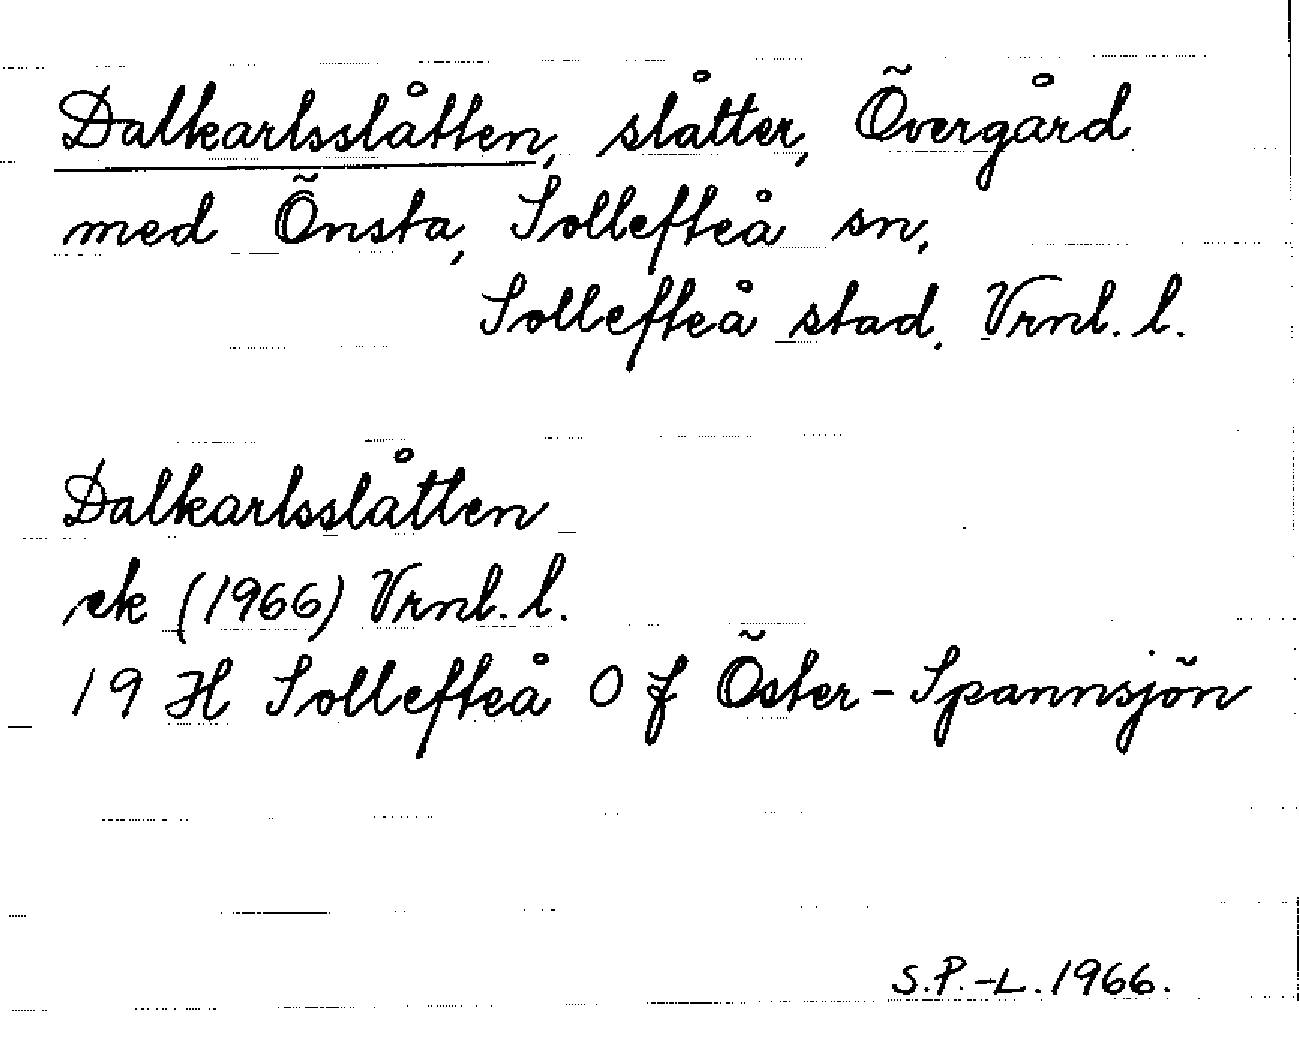 Dalkarlsslåtten, slåtter, Övergård
med Önsta, Sollefteå sn,
Sollefteå stad. Vrnl. l.
Dalkarlsslåtten
ek (1966) Vrnl. l.
19 H Sollefteå 0 f Öster-Spannsjön
S.P.-L. 1966.